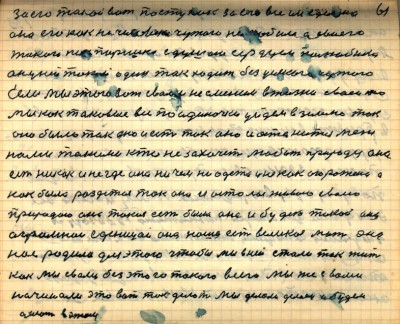 61
за его такой вот поступок за его все им сделано
она его как не человека чужого не любила а своего
такого по старинке с душою сердцем полюбила
он у ней такой один так ходит без всякого чужого
Если мы этого вот своим не сменим в жизни своей то
мы как таковые все по одиночке уйдем в землю так
оно было так оно и есть так оно и останется меж
нами такими кто не захочет любить природу она
есть никак и негде она ничем не одета она как огорожена
как была раздетая так она и осталась живого своего
природою она такая есть была она и будет такой она
огромная единица она наша есть великая мать она
нас родила для этого чтобы мы в ней стали так жить
как мы с вами без этого такого всего мы же с вами
начинали это вот так делать мы делали делаем и будем
делать в этом